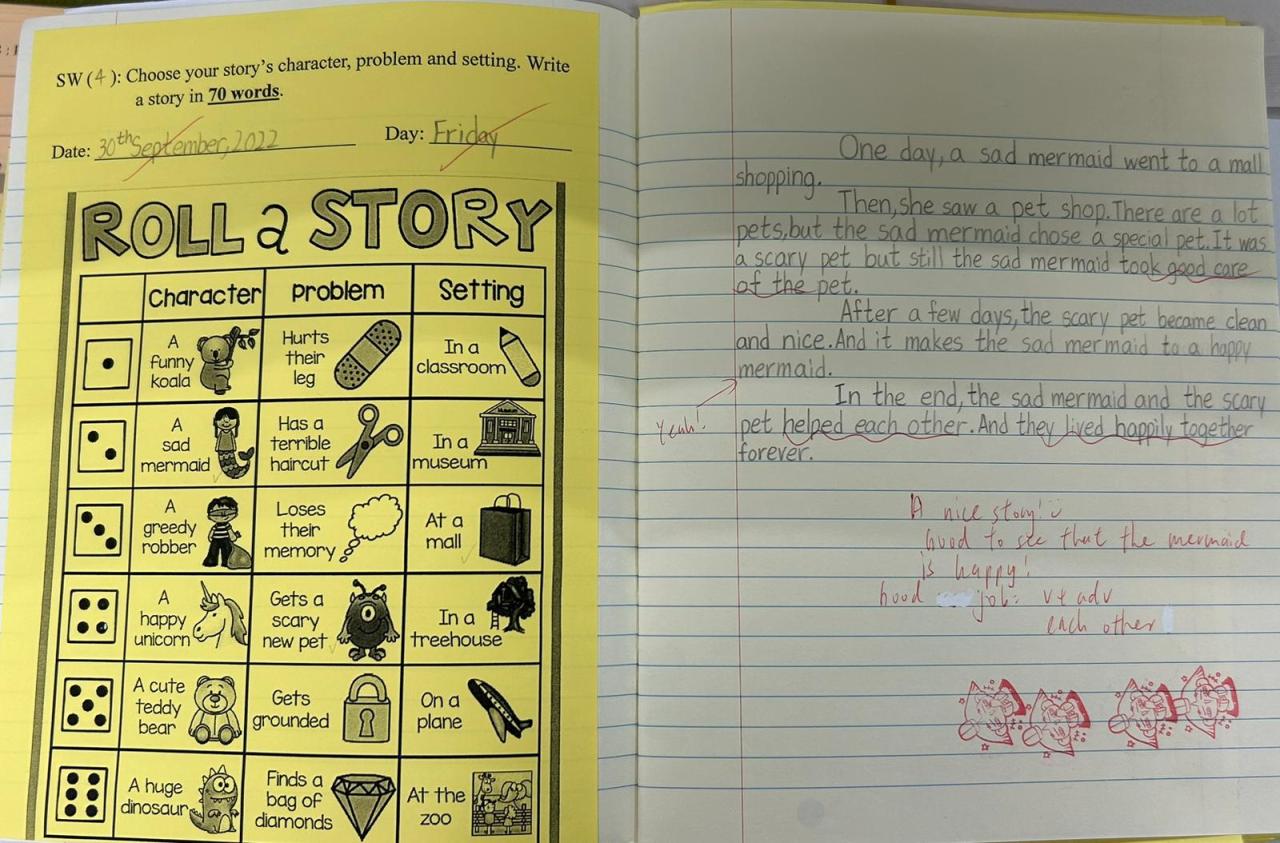 SW (4): Choose your story's character, problem and setting. Write
a story in 70 words.
Date: 30th September, 2022 Day: Friday
ROLL a STORY
Character problem Setting
A funny koala
Hurts their leg
In a classroom
A sad mermaid
Has a terrible haircut
MUSEUM
In a museum
A greedy robber
Loses their memory
At a mall
A happy unicorn
Gets a scary new pet
In a treehouse
A cute teddy bear
Gets grounded
On a plane
A huge dinosaur
Finds a bag of diamonds
At the zoo
One day, a sad mermaid went to a mall
shopping.
Then, she saw a pet shop. There are a lot
pets, but the sad mermaid chose a special pet. It was
a scary pet but still the sad mermaid took good care
of the pet.
After a few days, the scary pet became clean
and nice. And it makes the sad mermaid to a happy
mermaid.
In the end, the sad mermaid and the scary
Yeah!
pet helped each other. And they lived happily together
forever.
A nice story!
Good to see that the mermaid
is happy!
Good job: v+ adv
each other